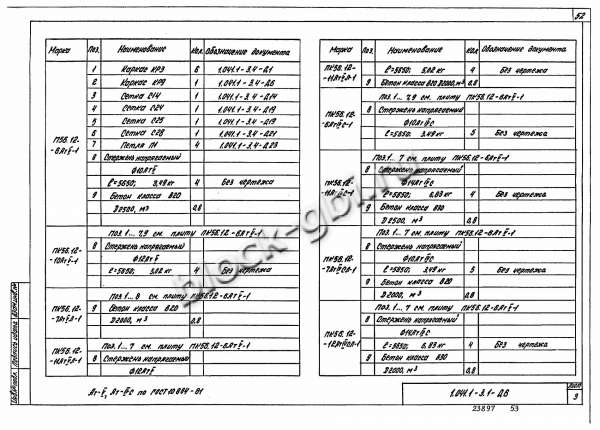 52
Марка Поз. Наименование Кол. Обозначение документа
1 Каркас КР3 6 1.041.1-3.4-Д1
2 Каркас КР9 1 1.041.1-3.4-Д6
3 Сетка С14 1 1.041.1-3.4-Д14
4 Сетка С24 1 1.041.1-3.4-Д19
5 Сетка С25 1 1.041.1-3.4-Д19
6 Сетка С28 1 1.041.1-3.4-Д21
7 Петля П1 4 1.041.1-3.4-Д23
П56.12-
-8АтV-1
8 Стержень напрягаемый
Ф10АтV
ℓ=5650; 3,49 кг 4 Без чертежа
9 Бетон класса В20
D2500, м³ 0,8
ПК56.12-
-10АтV-1
Поз. 1... 7,9 см. плиту ПК56.12-8АтV-1
8 Стержень напрягаемый
Ф12АтV
ℓ=5650; 5,02 кг 4 Без чертежа
ПК56.12-
-7АтVЛ-1
Поз. 1... 8 см. плиту ПК56.12-8АтV-1
9 Бетон класса В20
D2000, м³ 0,8
ПК56.12-
-11АтVЛ-1
Поз. 1... 7 см. плиту ПК56.12-8АтV-1
8 Стержень напрягаемый
Ф12АтV
Ат-V, Ат-IVС по ГОСТ 10884-81
Марка Поз. Наименование Кол. Обозначение документа
ПК56.12-
-11АтVЛ-1
ℓ=5650; 5,02 кг 4 Без чертежа
9 Бетон класса В20 D2000, м³ 0,8
ПК56.12-
-8АтIVС-1
Поз. 1... 7,9 см. плиту ПК56.12-8АтV-1
8 Стержень напрягаемый
Ф10АтIVС
ℓ=5650; 3,49 кг 5 Без чертежа
ПК56.12-
-11АтIVС-1
Поз. 1... 7 см. плиту ПК56.12-8АтV-1
8 Стержень напрягаемый
Ф14АтIVС
ℓ=5650; 6,83 кг 4 Без чертежа
9 Бетон класса В30
D2500, м³ 0,8
ПК56.12-
-7АтIVСЛ-1
Поз. 1... 7 см. плиту ПК56.12-8АтV-1
8 Стержень напрягаемый
Ф10АтIVС
ℓ=5650; 3,49 кг 5 Без чертежа
9 Бетон класса В20
D2000, м³ 0,8
ПК56.12-
-12АтIVСЛ-1
Поз. 1... 7 см. плиту ПК56.12-8АтV-1
8 Стержень напрягаемый
Ф14АтIVС
ℓ=5650; 6,83 кг 4 Без чертежа
9 Бетон класса В30
D2000, м³ 0,8
1.041.1-3.1-Д8
Лист
9
23897 53
block-gbi.ru